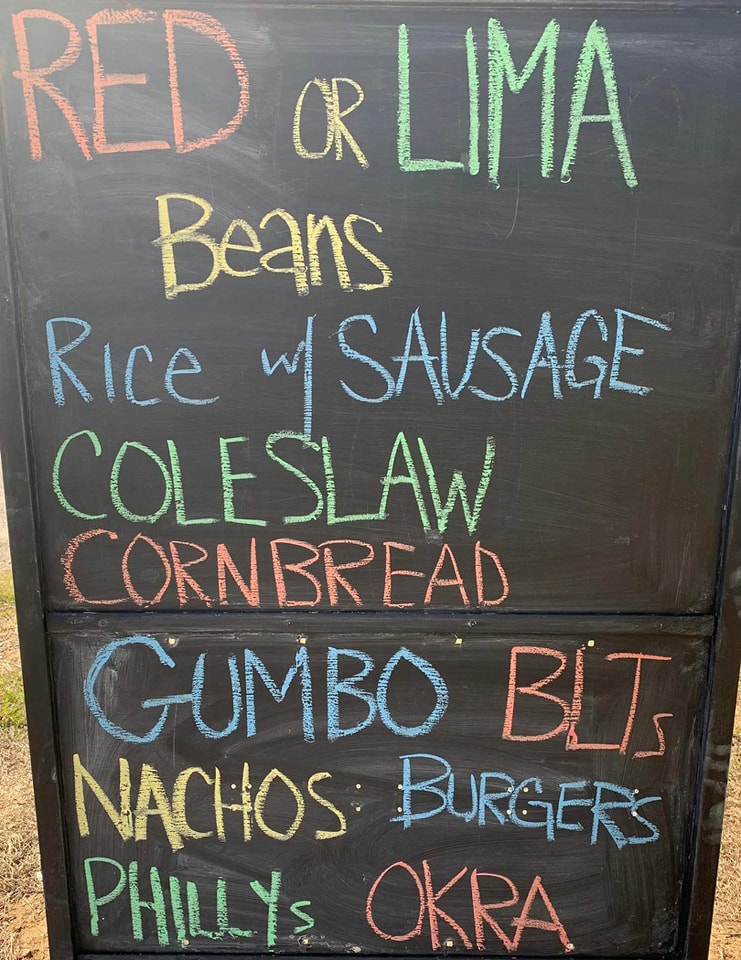 RED OR LIMA
Beans
Rice w/ SAUSAGE
COLESLAW
CORNBREAD
GUMBO BLTs
NACHOS BURGERS
PHILLYs OKRA